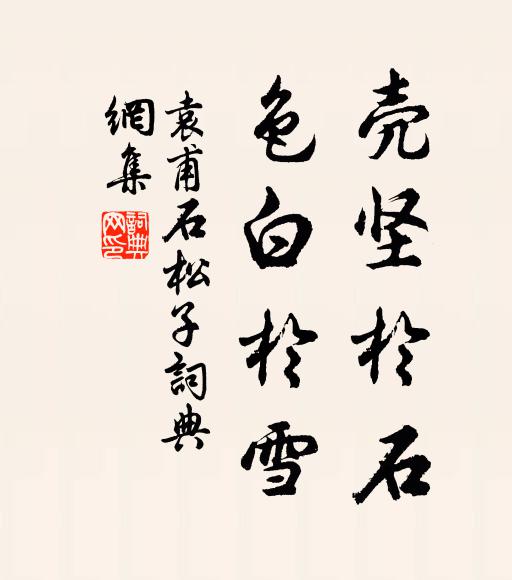 壳坚於石
色白於雪
袁甫石松子詞典
網集
詞典網印